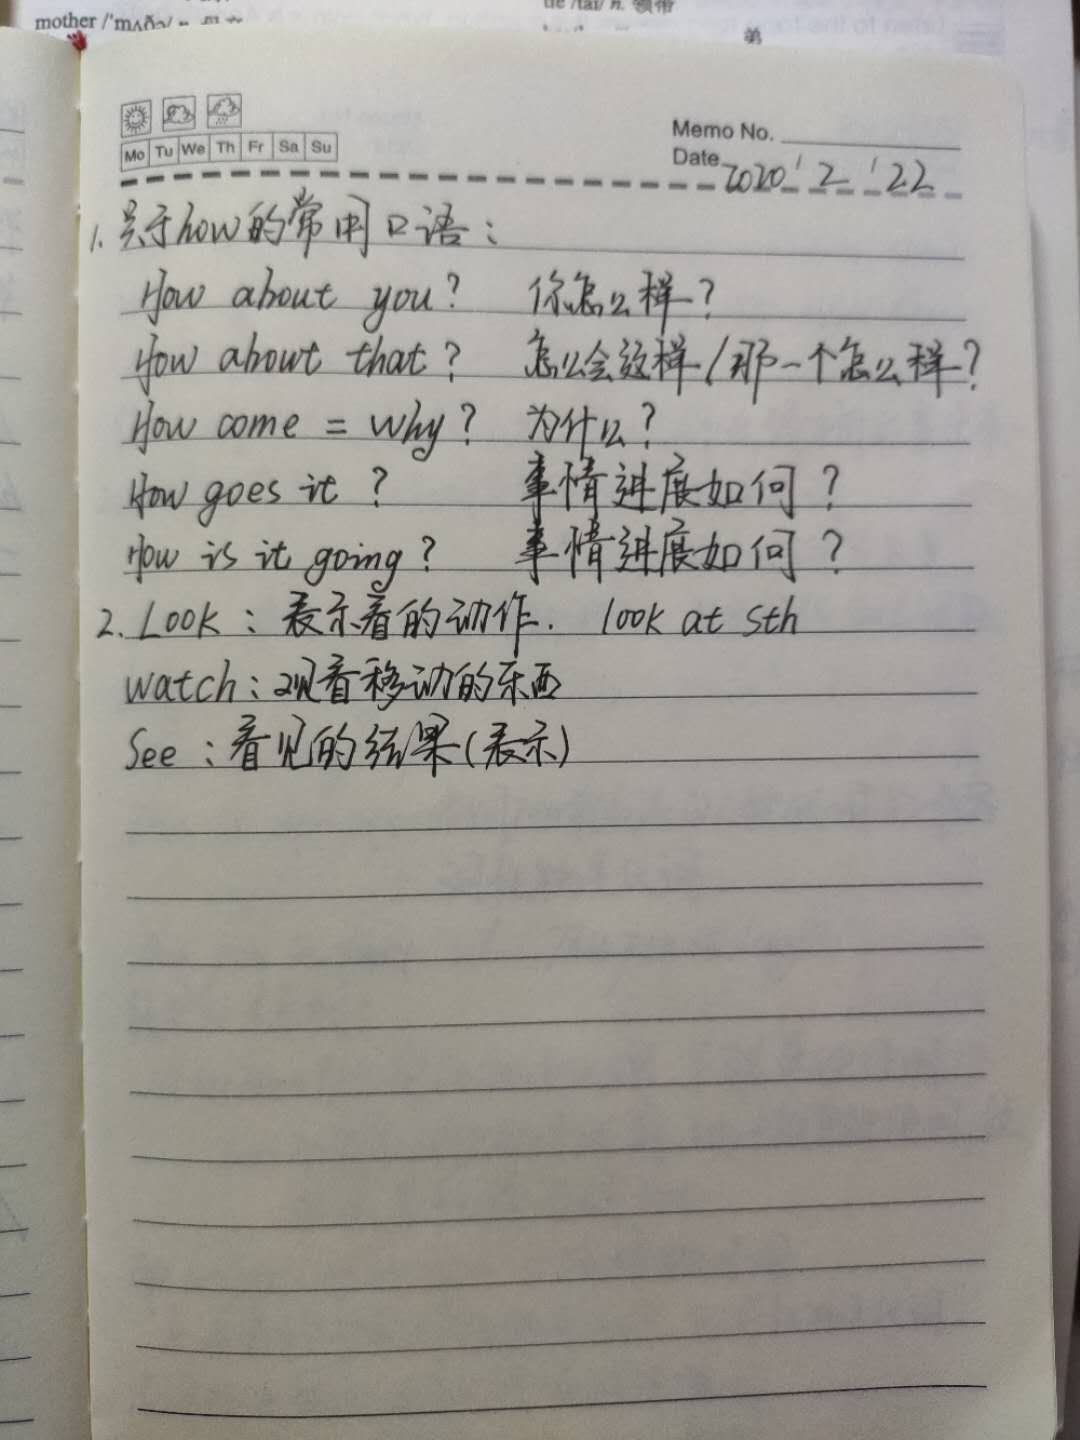 mother /'mʌðə/ n.
tie /tai/ n. 领带
弟
Mo Tu We Th Fr Sa Su
Memo No.
Date 2020 / 2 / 22
1. 关于how的常用口语：
How about you？ 你怎么样？
How about that？ 怎么会这样/那一个怎么样？
How come = why？ 为什么？
How goes it？ 事情进展如何？
How is it going？ 事情进展如何？
2. Look：表示看的动作. look at sth
watch：观看移动的东西
See：看见的结果(表示)